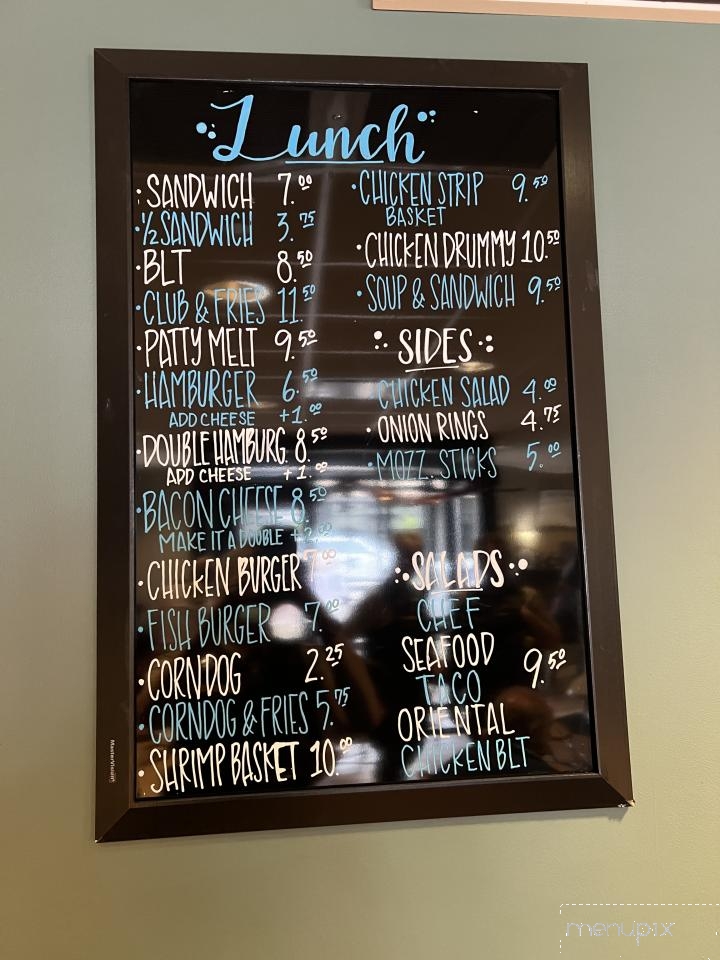 Lunch
• SANDWICH 7.00
• 1/2 SANDWICH 3.75
• BLT 8.50
• CLUB & FRIES 11.50
• PATTY MELT 9.50
• HAMBURGER 6.50
ADD CHEESE +1.00
• DOUBLE HAMBURG. 8.50
ADD CHEESE +1.00
• BACON CHEESE 8.50
MAKE IT A DOUBLE +2.00
• CHICKEN BURGER 7.00
• FISH BURGER 7.00
• CORNDOG 2.25
• CORNDOG & FRIES 5.75
• SHRIMP BASKET 10.00
• CHICKEN STRIP 9.50
BASKET
• CHICKEN DRUMMY 10.50
• SOUP & SANDWICH 9.50
SIDES
• CHICKEN SALAD 4.00
• ONION RINGS 4.75
• MOZZ. STICKS 5.00
SALADS
CHEF
SEAFOOD 9.50
TACO
ORIENTAL
CHICKEN BLT
MasterVision
menupix